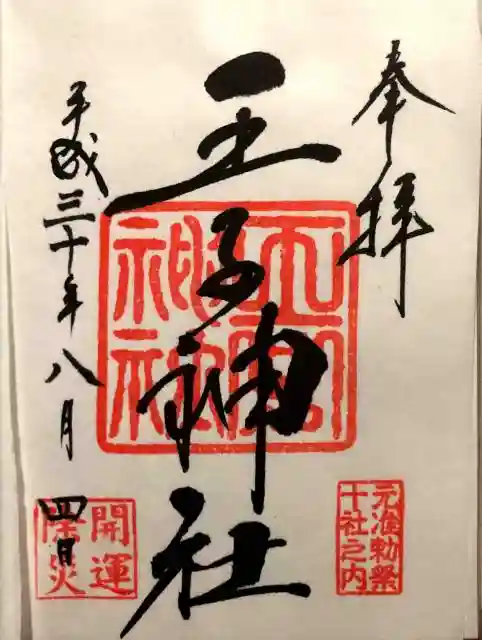 奉拝
王子神社
王子
神社
平成三十年八月四日
元准勅祭
十社之内
開運
除災